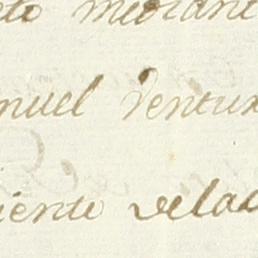 eto mediant
nuel Ventur
iento dela